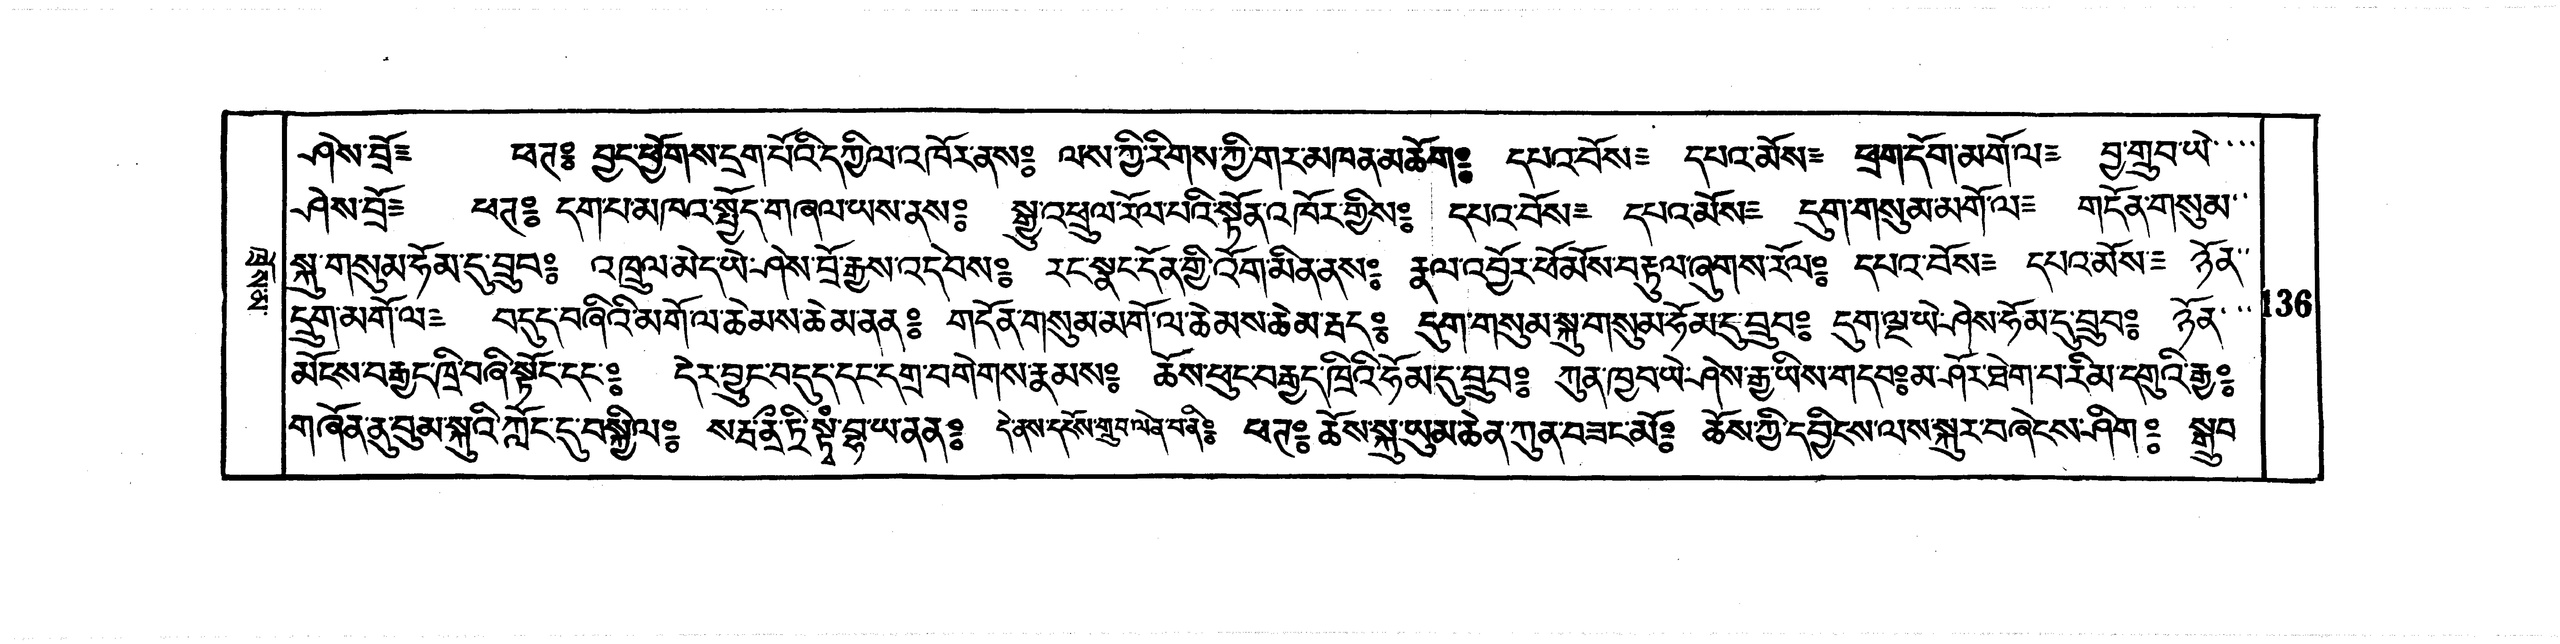 ཤེས་བྲོ༔ ཕཊ༔ བྱང་ཕྱོགས་དྲག་པོའི་དཀྱིལ་འཁོར་ནས༔ ལས་ཀྱི་རིགས་ཀྱི་གར་མཁན་མཆོག༔ དཔའ་བོས༔ དཔའ་མོས༔ ཕྲག་དོག་མགོ་ལ༔ བྱ་གྲུབ་ཡེ་
ཤེས་བྲོ༔ ཕཊ༔ དག་པ་མཁའ་སྤྱོད་གཞལ་ཡས་ནས༔ སྒྱུ་འཕྲུལ་རོལ་པའི་སྟོན་འཁོར་གྱིས༔ དཔའ་བོས༔ དཔའ་མོས༔ དུག་གསུམ་མགོ་ལ༔ གདོན་གསུམ་
སྐུ་གསུམ་ཧོམ་དུ་བྲུབ༔ འཁྲུལ་མེད་ཡེ་ཤེས་བྲོ་རྒྱས་འདེབས༔ རང་སྣང་དོན་གྱི་འོག་མིན་ནས༔ རྣལ་འབྱོར་ཕོ་མོས་བརྟུལ་ཞུགས་རོལ༔ དཔའ་བོས༔ དཔའ་མོས༔ ཉོན་
དྲུག་མགོ་ལ༔ བདུད་བཞིའི་མགོ་ལ་ཆེམས་ཆེམ་ནན༔ གདོན་གསུམ་མགོ་ལ་ཆེམས་ཆེམ་རྦད༔ དུག་གསུམ་སྐུ་གསུམ་ཧོམ་དུ་བྲུབ༔ དུག་ལྔ་ཡེ་ཤེས་ཧོམ་དུ་བྲུབ༔ ཉོན་
མོངས་བརྒྱད་ཁྲི་བཞི་སྟོང་དང་༔ དེར་བྱུང་བདུད་དང་དགྲ་བགེགས་རྣམས༔ ཆོས་ཕུང་བརྒྱད་ཁྲིའི་ཧོམ་དུ་བྲུབ༔ ཀུན་ཁྱབ་ཡེ་ཤེས་རྒྱ་ཡིས་གདབ༔ མ་ཤོར་ཐེག་པ་རིམ་དགུའི་རྒྱ༔
གཞོན་ནུ་བུམ་སྐུའི་ཀློང་དུ་བསྐྱིལ༔ དེ་ནས་དངོས་གྲུབ་ལེན་པ་ནི༔ ཕཊ༔ ཆོས་སྐུ་ཡུམ་ཆེན་ཀུན་བཟང་མོ༔ ཆོས་ཀྱི་དབྱིངས་ལས་སྐུར་བཞེངས་ཤིག༔ སྒྲུབ
136